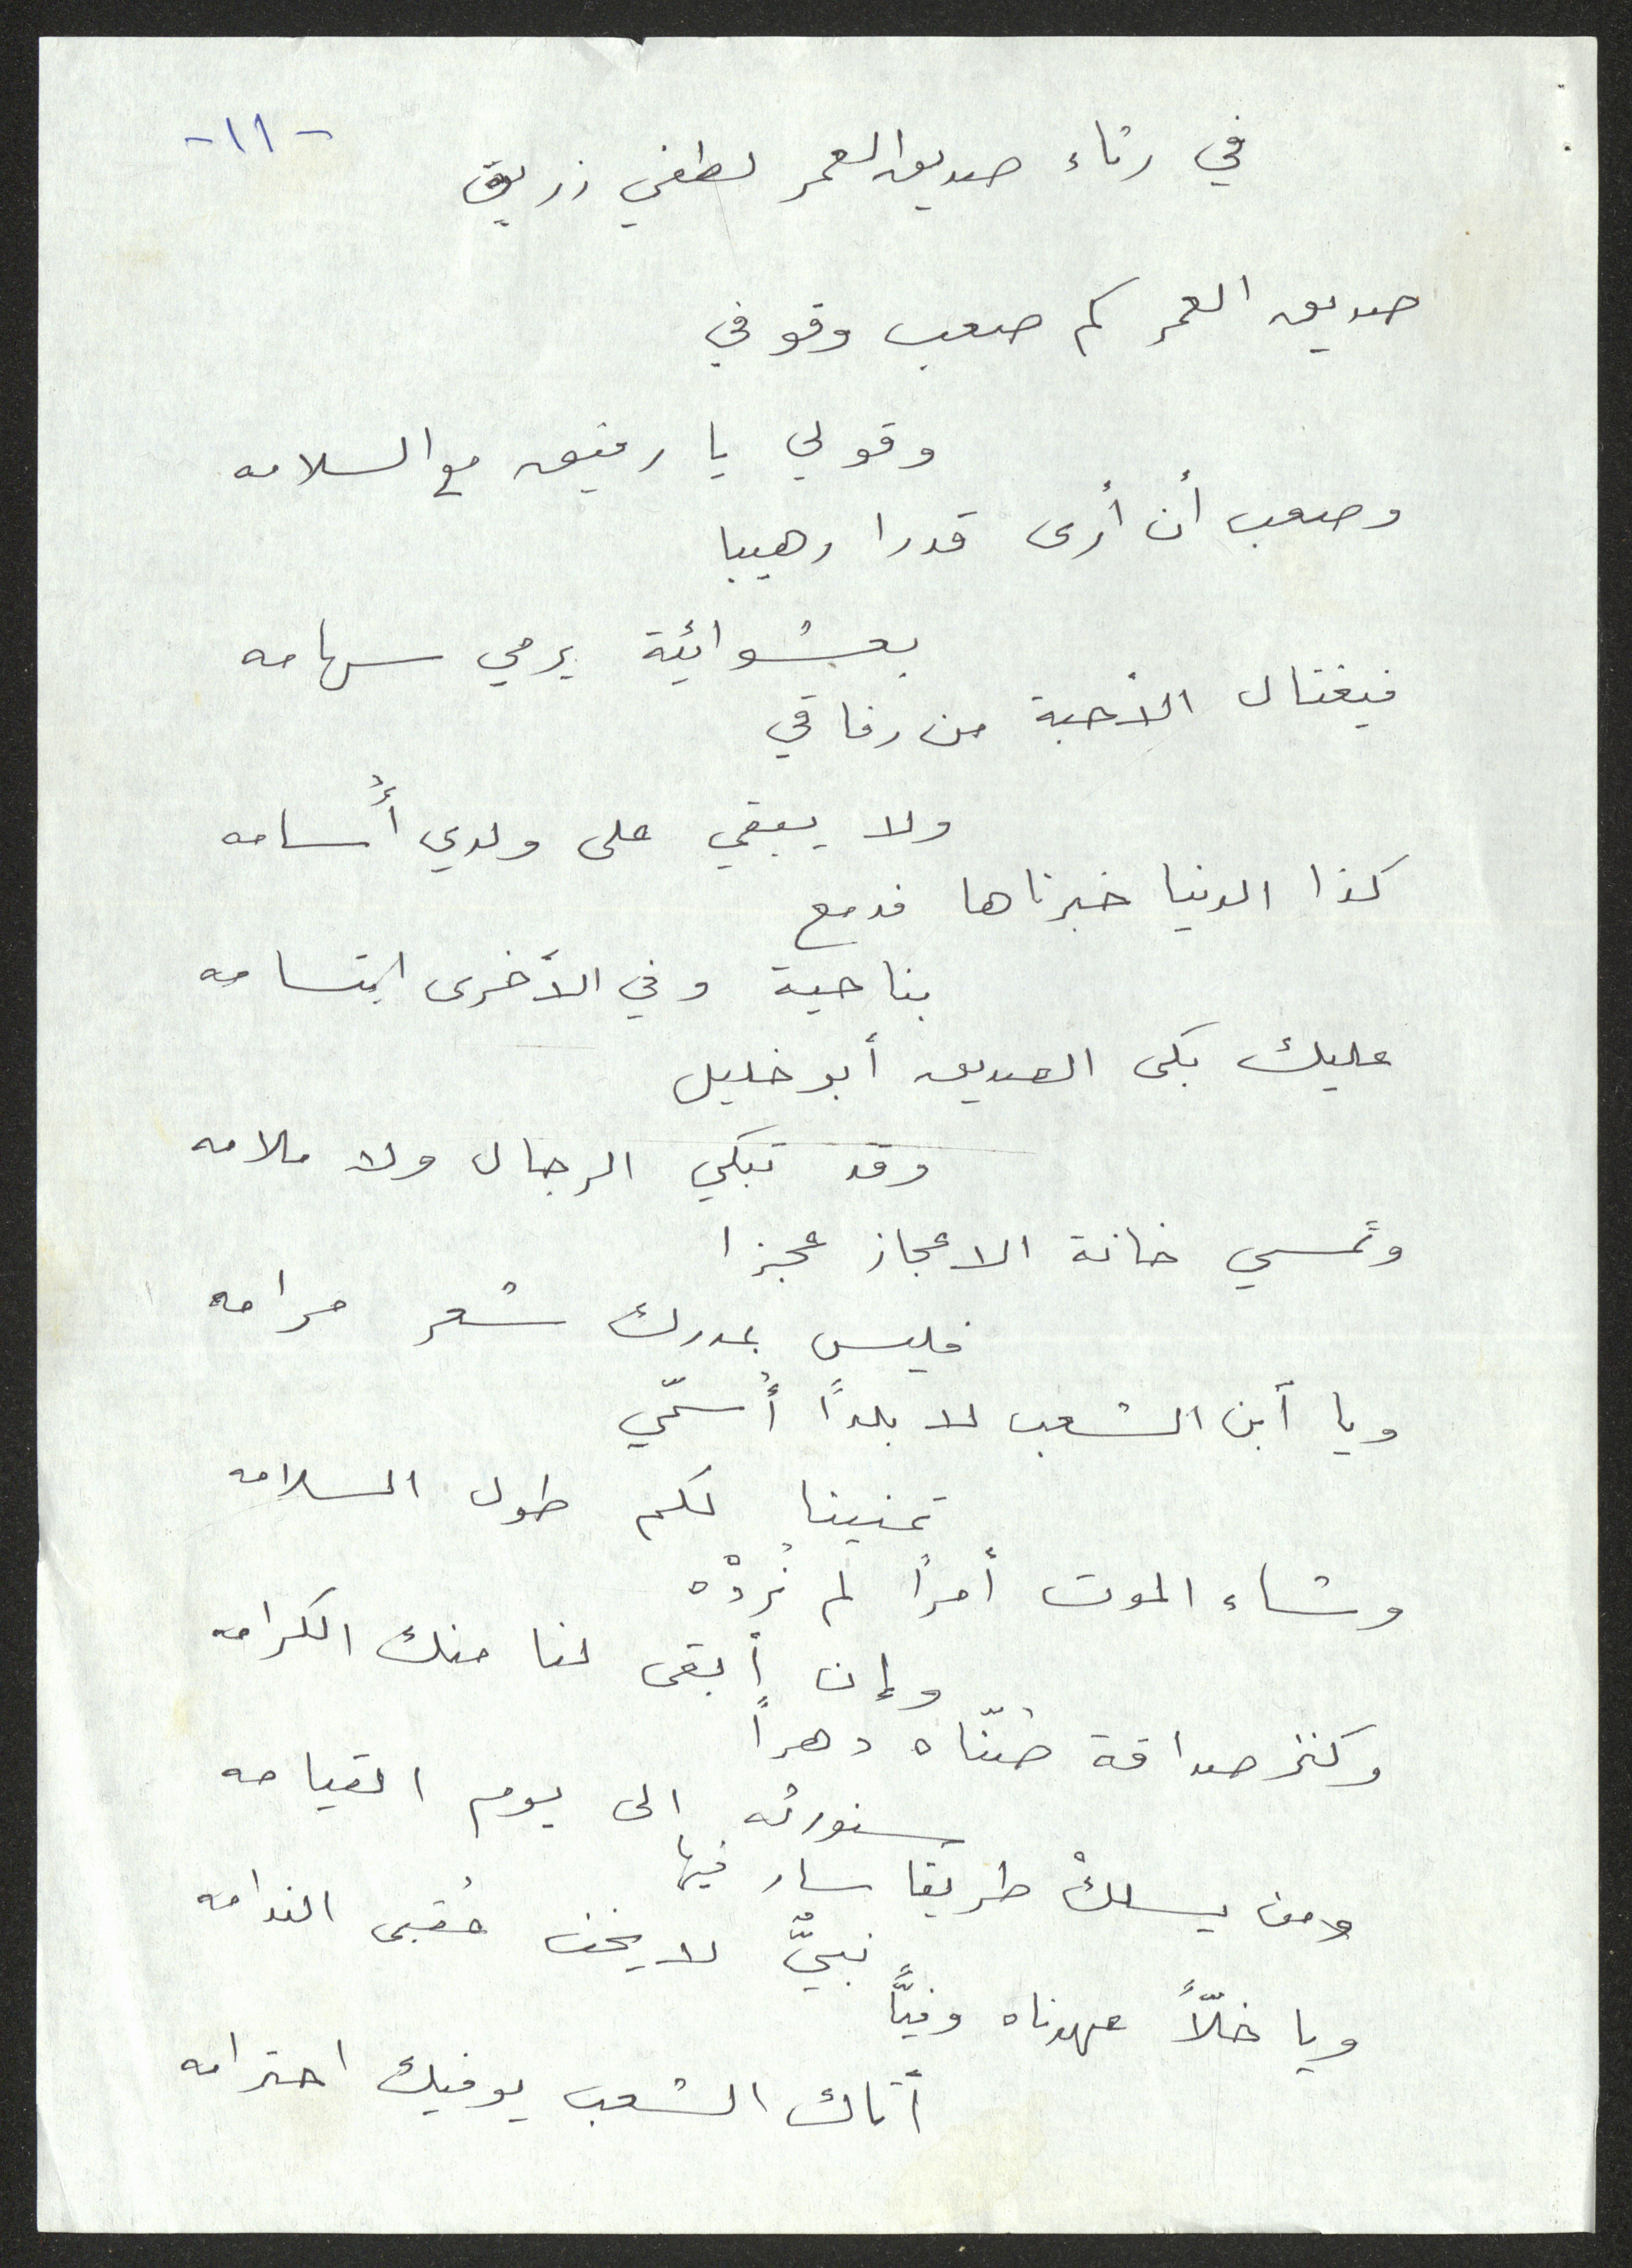 -١١-
في رثاء صديق العمر لطفي زريق
صديق العمر كم صعب وقوفي
وقولي يا رفيق مع السلامه
وصعب أن أرى قدرا رهيبا
بعشوائية يرمي سهامه
فيغتال الأحبة من رفاقي
ولا يبقي على ولدي أُسامه
كذا الدنيا خبرناها فدمع
بناحية وفي الأخرى ابتسامه
عليك بكى الصديق أبو خليل
وقد تبكي الرجال ولا ملامه
وتمسي خانة الاعجاز عجزا
فليس بمدرك شعر مرامه
ويا أبن الشعب لا بلداً أُسمّي
تمنينا لكم طول السلامه
وشاء الموت أمراً لم نُردْه
وإن أبقى لنا منك الكرامه
وكنز صداقة صُنّاه دهراً
سنورثه الى يوم القيامه
ومن يسلكْ طريقا سار فيها
نبيٌّ لا يخف عُقبى الندامه
ويا خلّاً عهدناه وفيًّا
أتاك الشعب يوفيك احترامه